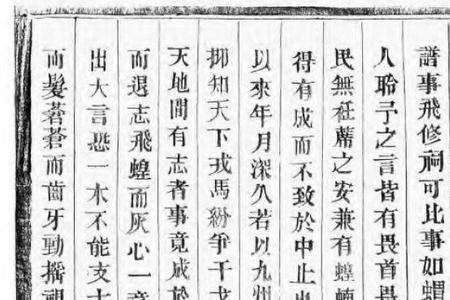 譜事飛修祠可比事如蝟
人聆予之言皆有畏首畏
民無衽蓆之安兼有蝗蝻
得有成而不致於中止
以來年月深久若以九州
抑知天下戎馬紛爭干戈
天地間有志者事竟成於
而退志飛蝗而灰心一意
出大言恐一木不能支大
而髮蒼蒼而齒牙動搖視